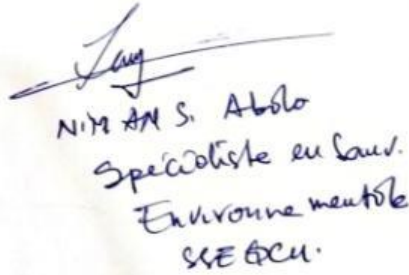 NIMAN S. Abdo
Spécialiste en Sauv.
Environnementale